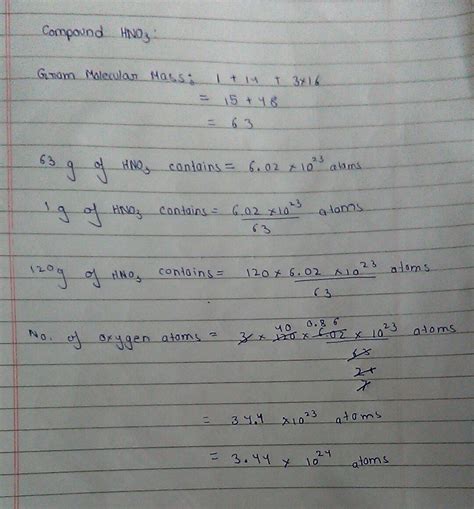 Compound HNO3:
Gram Molecular Mass: 1 + 14 + 3x16
= 15 + 48
= 63
63 g of HNO3 contains = 6.02 x 10^23 atoms
1 g of HNO3 contains = 6.02 x 10^23 / 63 atoms
120g of HNO3 contains = 120 x 6.02 x 10^23 / 63 atoms
40 0.86
No. of oxygen atoms = 3 x 120 x 6.02 x 10^23 atoms
21
7
= 34.4 x 10^23 atoms
= 3.44 x 10^24 atoms